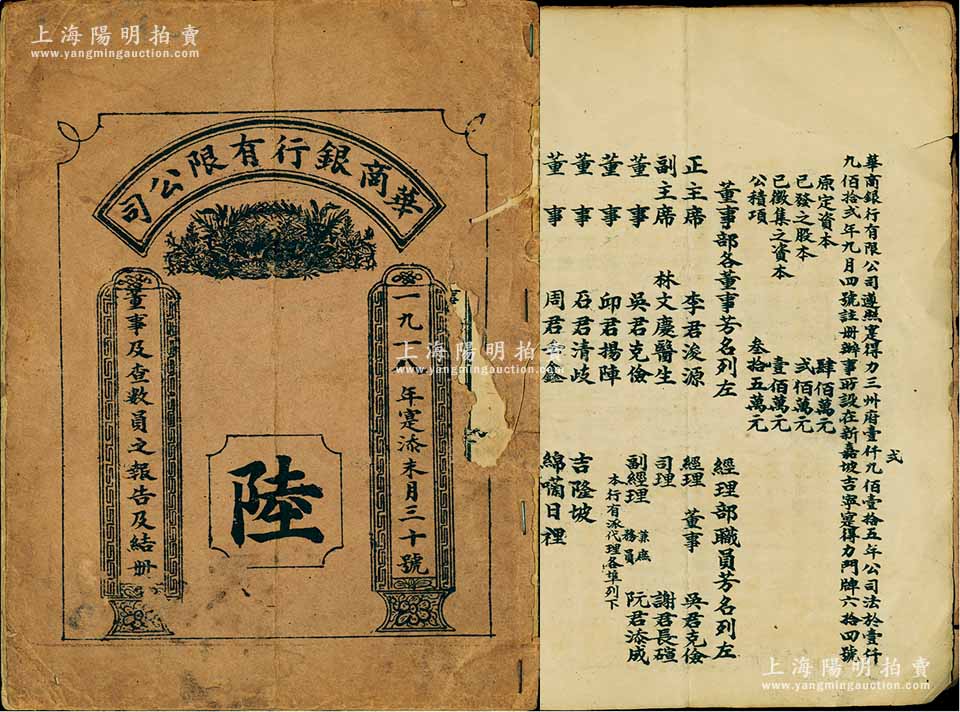 上海陽明拍賣
www.yangmingauction.com
華商銀行有限公司
一九一八年寔㴃末月三十號
陸
董事及查数員之報告及結册
弍
華商銀行有限公司遵照寔得力三州府壹仟九佰壹拾五年公司法於壹仟
九佰拾弍年九月四號註册辦事所設在新嘉坡吉寧寔得力門牌六拾四號
原定資本 肆佰萬元
已發之股本 弍佰萬元
已徵集之資本 壹佰萬元
公積項 叁拾五萬元
董事部各董事芳名列左
正主席 李君浚源
副主席 林文慶醫生
董事 吳君克儉
董事 邱君揚陣
董事 石君清岐
董事 周君
經理部職員芳名列左
經理 董事 吳君克儉
司理 謝君長䃐
副經理 兼庶務員 阮君添成
本行有派代理各埠列下
吉隆坡
綿嘓日裡
上海陽明拍賣
www.yangmingauction.com